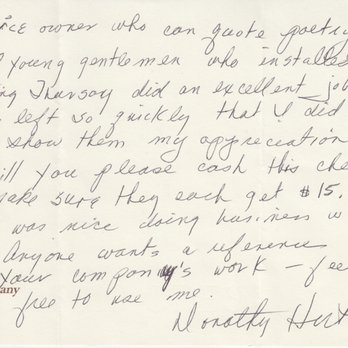 ice owner who can quote poetry
young gentlemen who installed
ing Thursay did an excellent job
left so quickly that I did
show them my appreciation
ill you please cash this che
ake sure they each get $15.
was nice doing business w
Anyone wants a reference
your company's work – feel
any
free to use me.
Dorothy